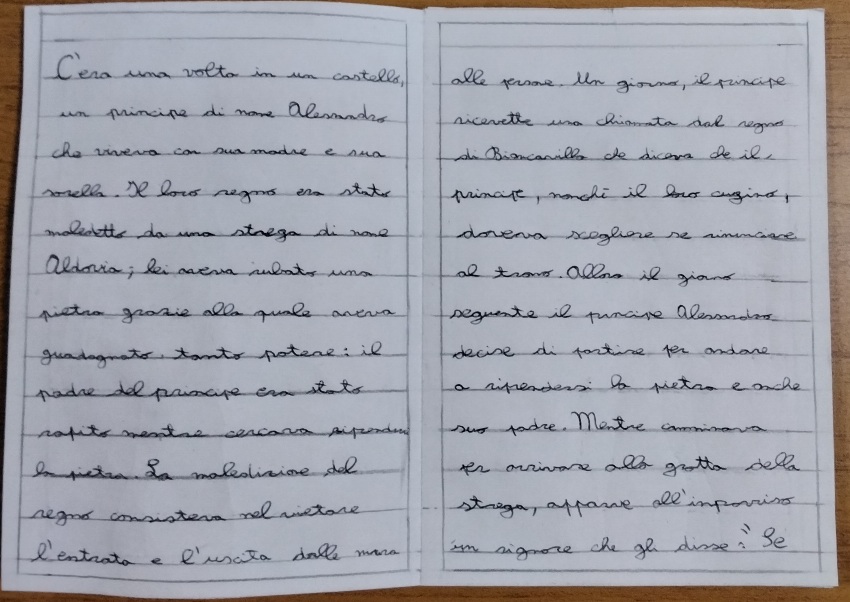 C'era una volta in un castello,
un principe di nome Alessandro
che viveva con sua madre e sua
sorella. Il loro regno era stato
maledetto da una strega di nome
Aldovia; lei aveva rubato una
pietra grazie alla quale aveva
guadagnato tanto potere: il
padre del principe era stato
rapito mentre cercava
la pietra. La maledizione del
regno consisteva nel vietare
l'entrata e l'uscita dalle mura
alle persone. Un giorno, il principe
ricevette una chiamata dal regno
di Biancavilla che diceva che il
principe, nonchì il loro cugino,
doveva scegliere se rinunciare
al trono. Allora il giorno
seguente il principe Alessandro
decise di partire per andare
a riprendersi la pietra e anche
suo padre. Mentre camminava
per arrivare alla grotta della
strega, apparve all'improvviso
un signore che gli disse: " Se